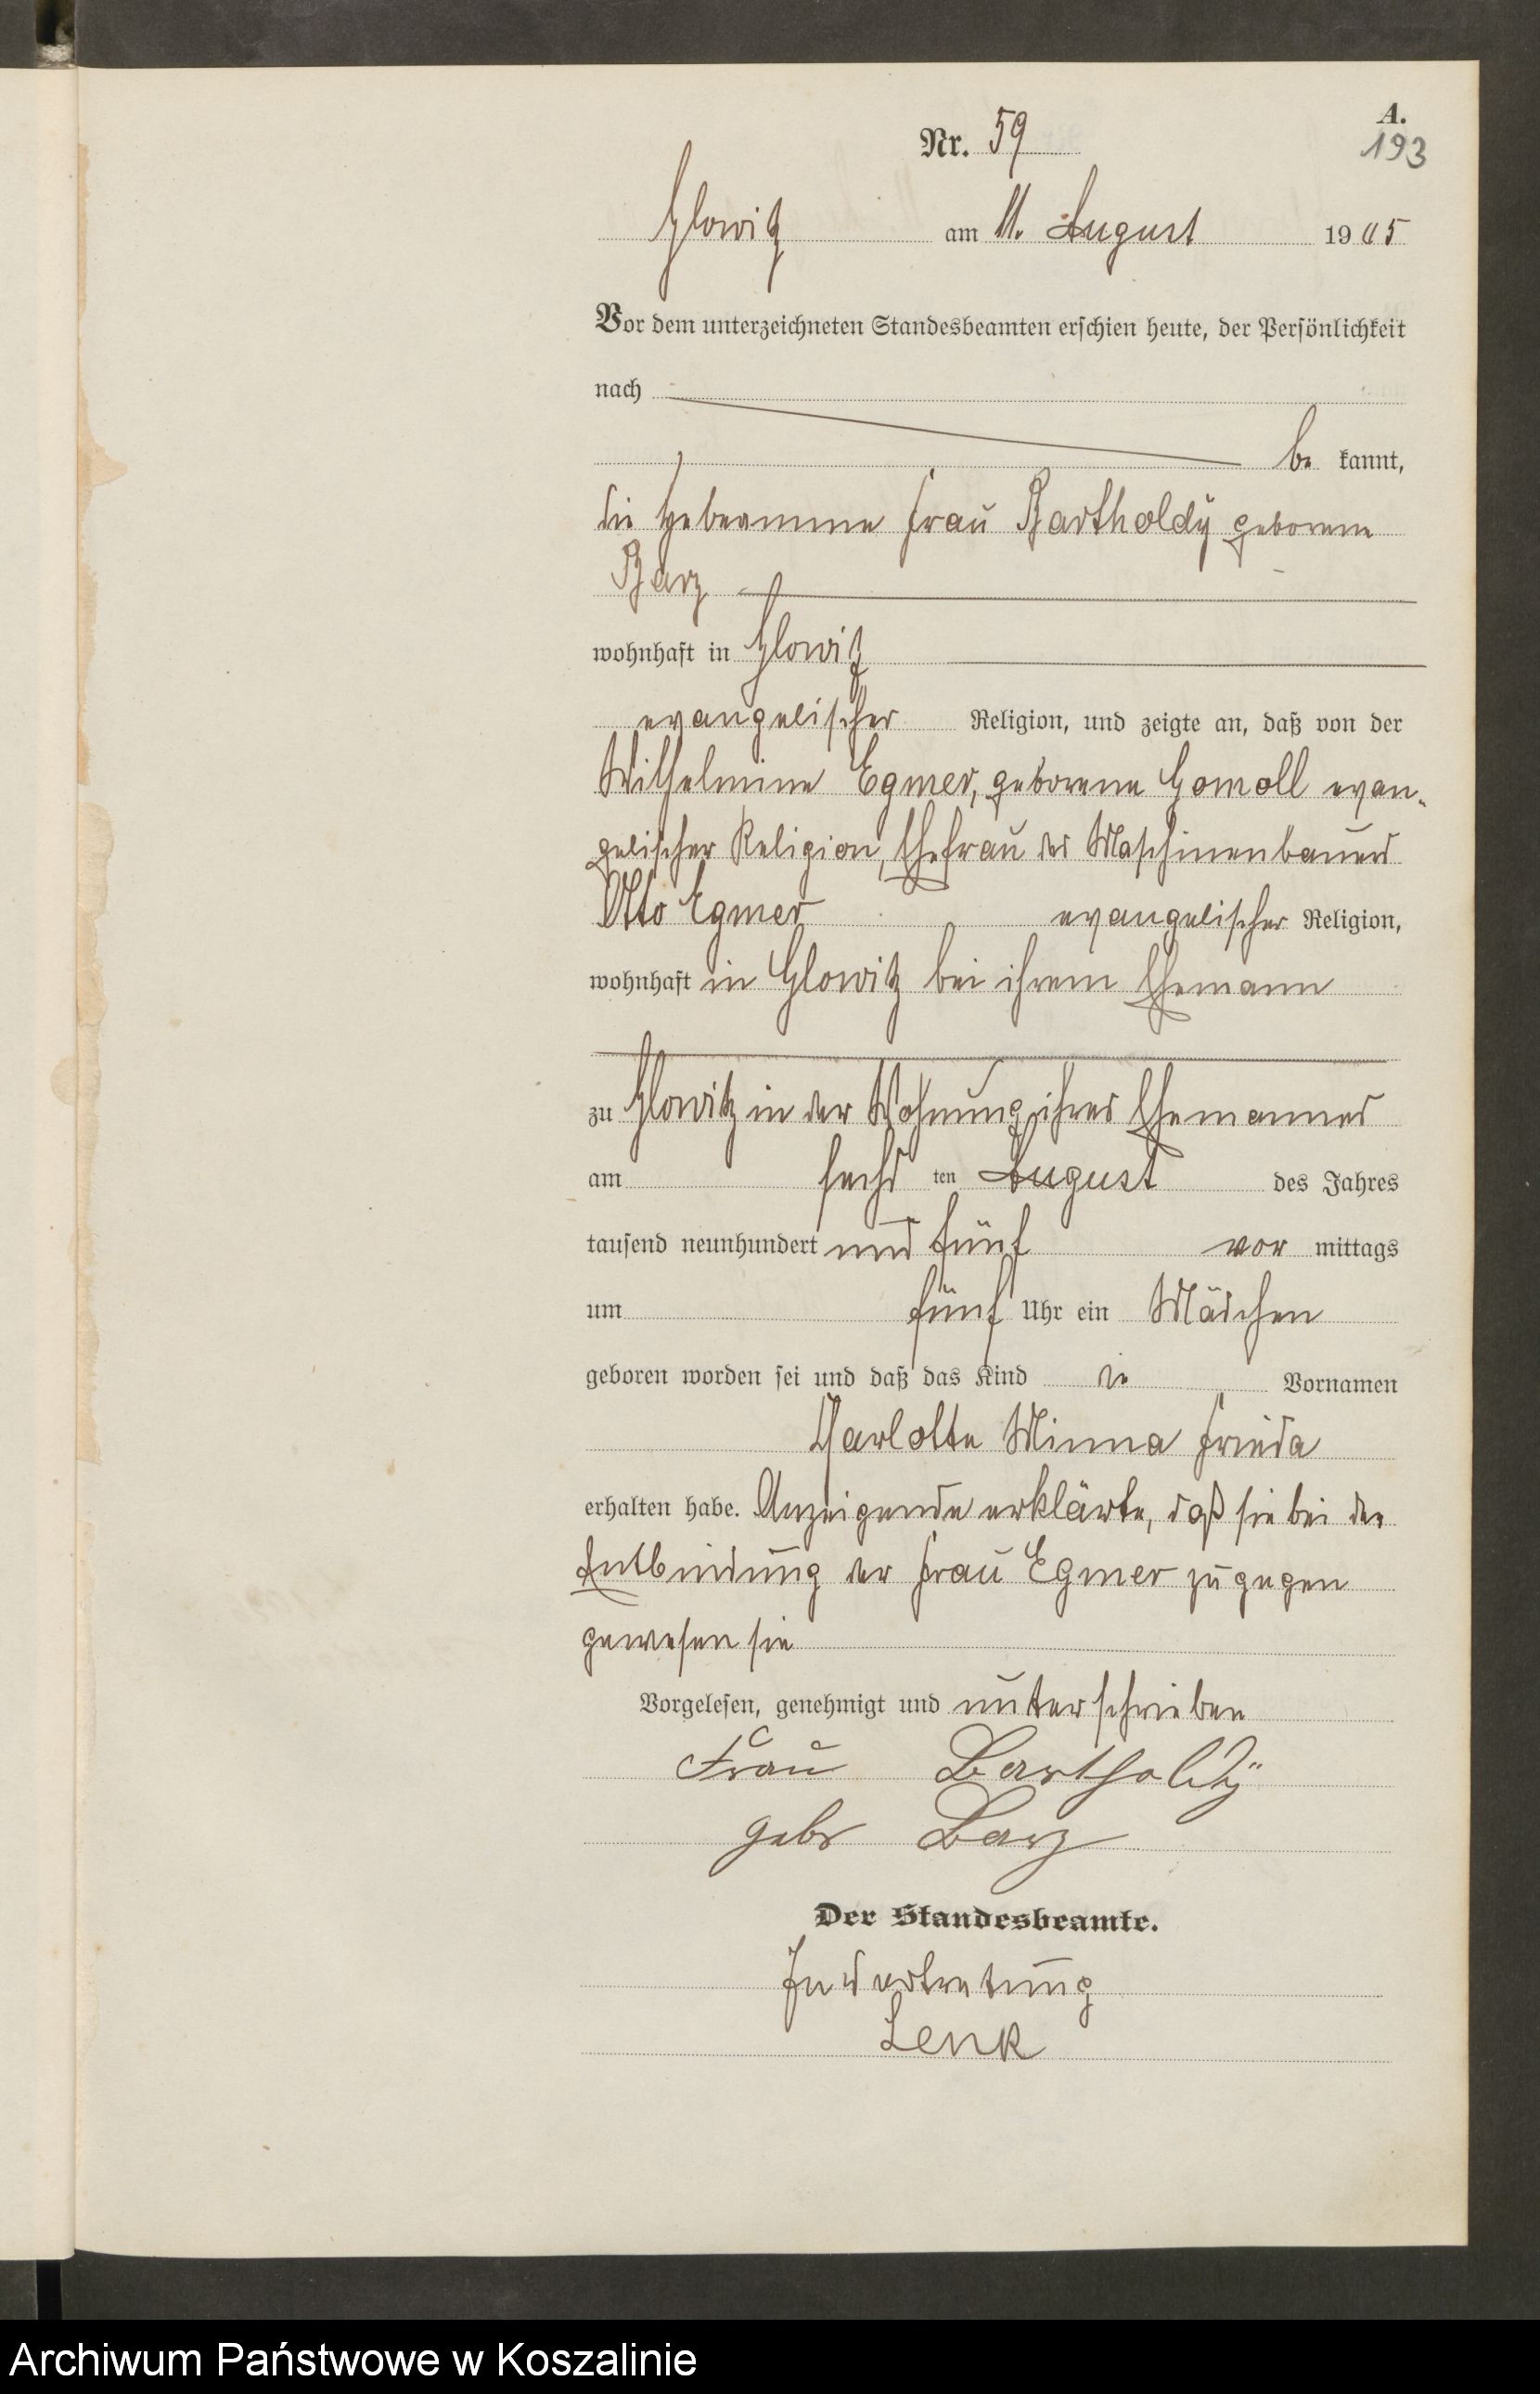 A.
Nr. 59
193
Glowitz am 11. August 1905
Vor dem unterzeichneten Standesbeamten erschien heute, der Persönlichkeit
nach
be kannt,
die Hebeamme Frau Bartholdÿ geborene
Barz
wohnhaft in Glowitz
evangelischer Religion, und zeigte an, daß von der
Wilhelmine Egmer, geborene Gomoll evan-
gelischer Religion, Ehefrau des Maschinenbauers
Otto Egmer evangelischer Religion,
wohnhaft in Glowitz bei ihrem Ehemann
zu Glowitz in der Wohnung ihres Ehemannes
am sechs ten August des Jahres
tausend neunhundert und fünf vor mittags
um fünf Uhr ein Mädchen
geboren worden sei und daß das Kind die Vornamen
Charlotte Minna Frieda
erhalten habe. Anzeigende erklärte, daß sie bei der
Entbindung der Frau Egmer zugegen
gewesen sie
Vorgelesen, genehmigt und unterschrieben
Frau Bartholdÿ
gebr Barz
Der Standesbeamte.
In Vertretung
Lenk
Archiwum Państwowe w Koszalinie